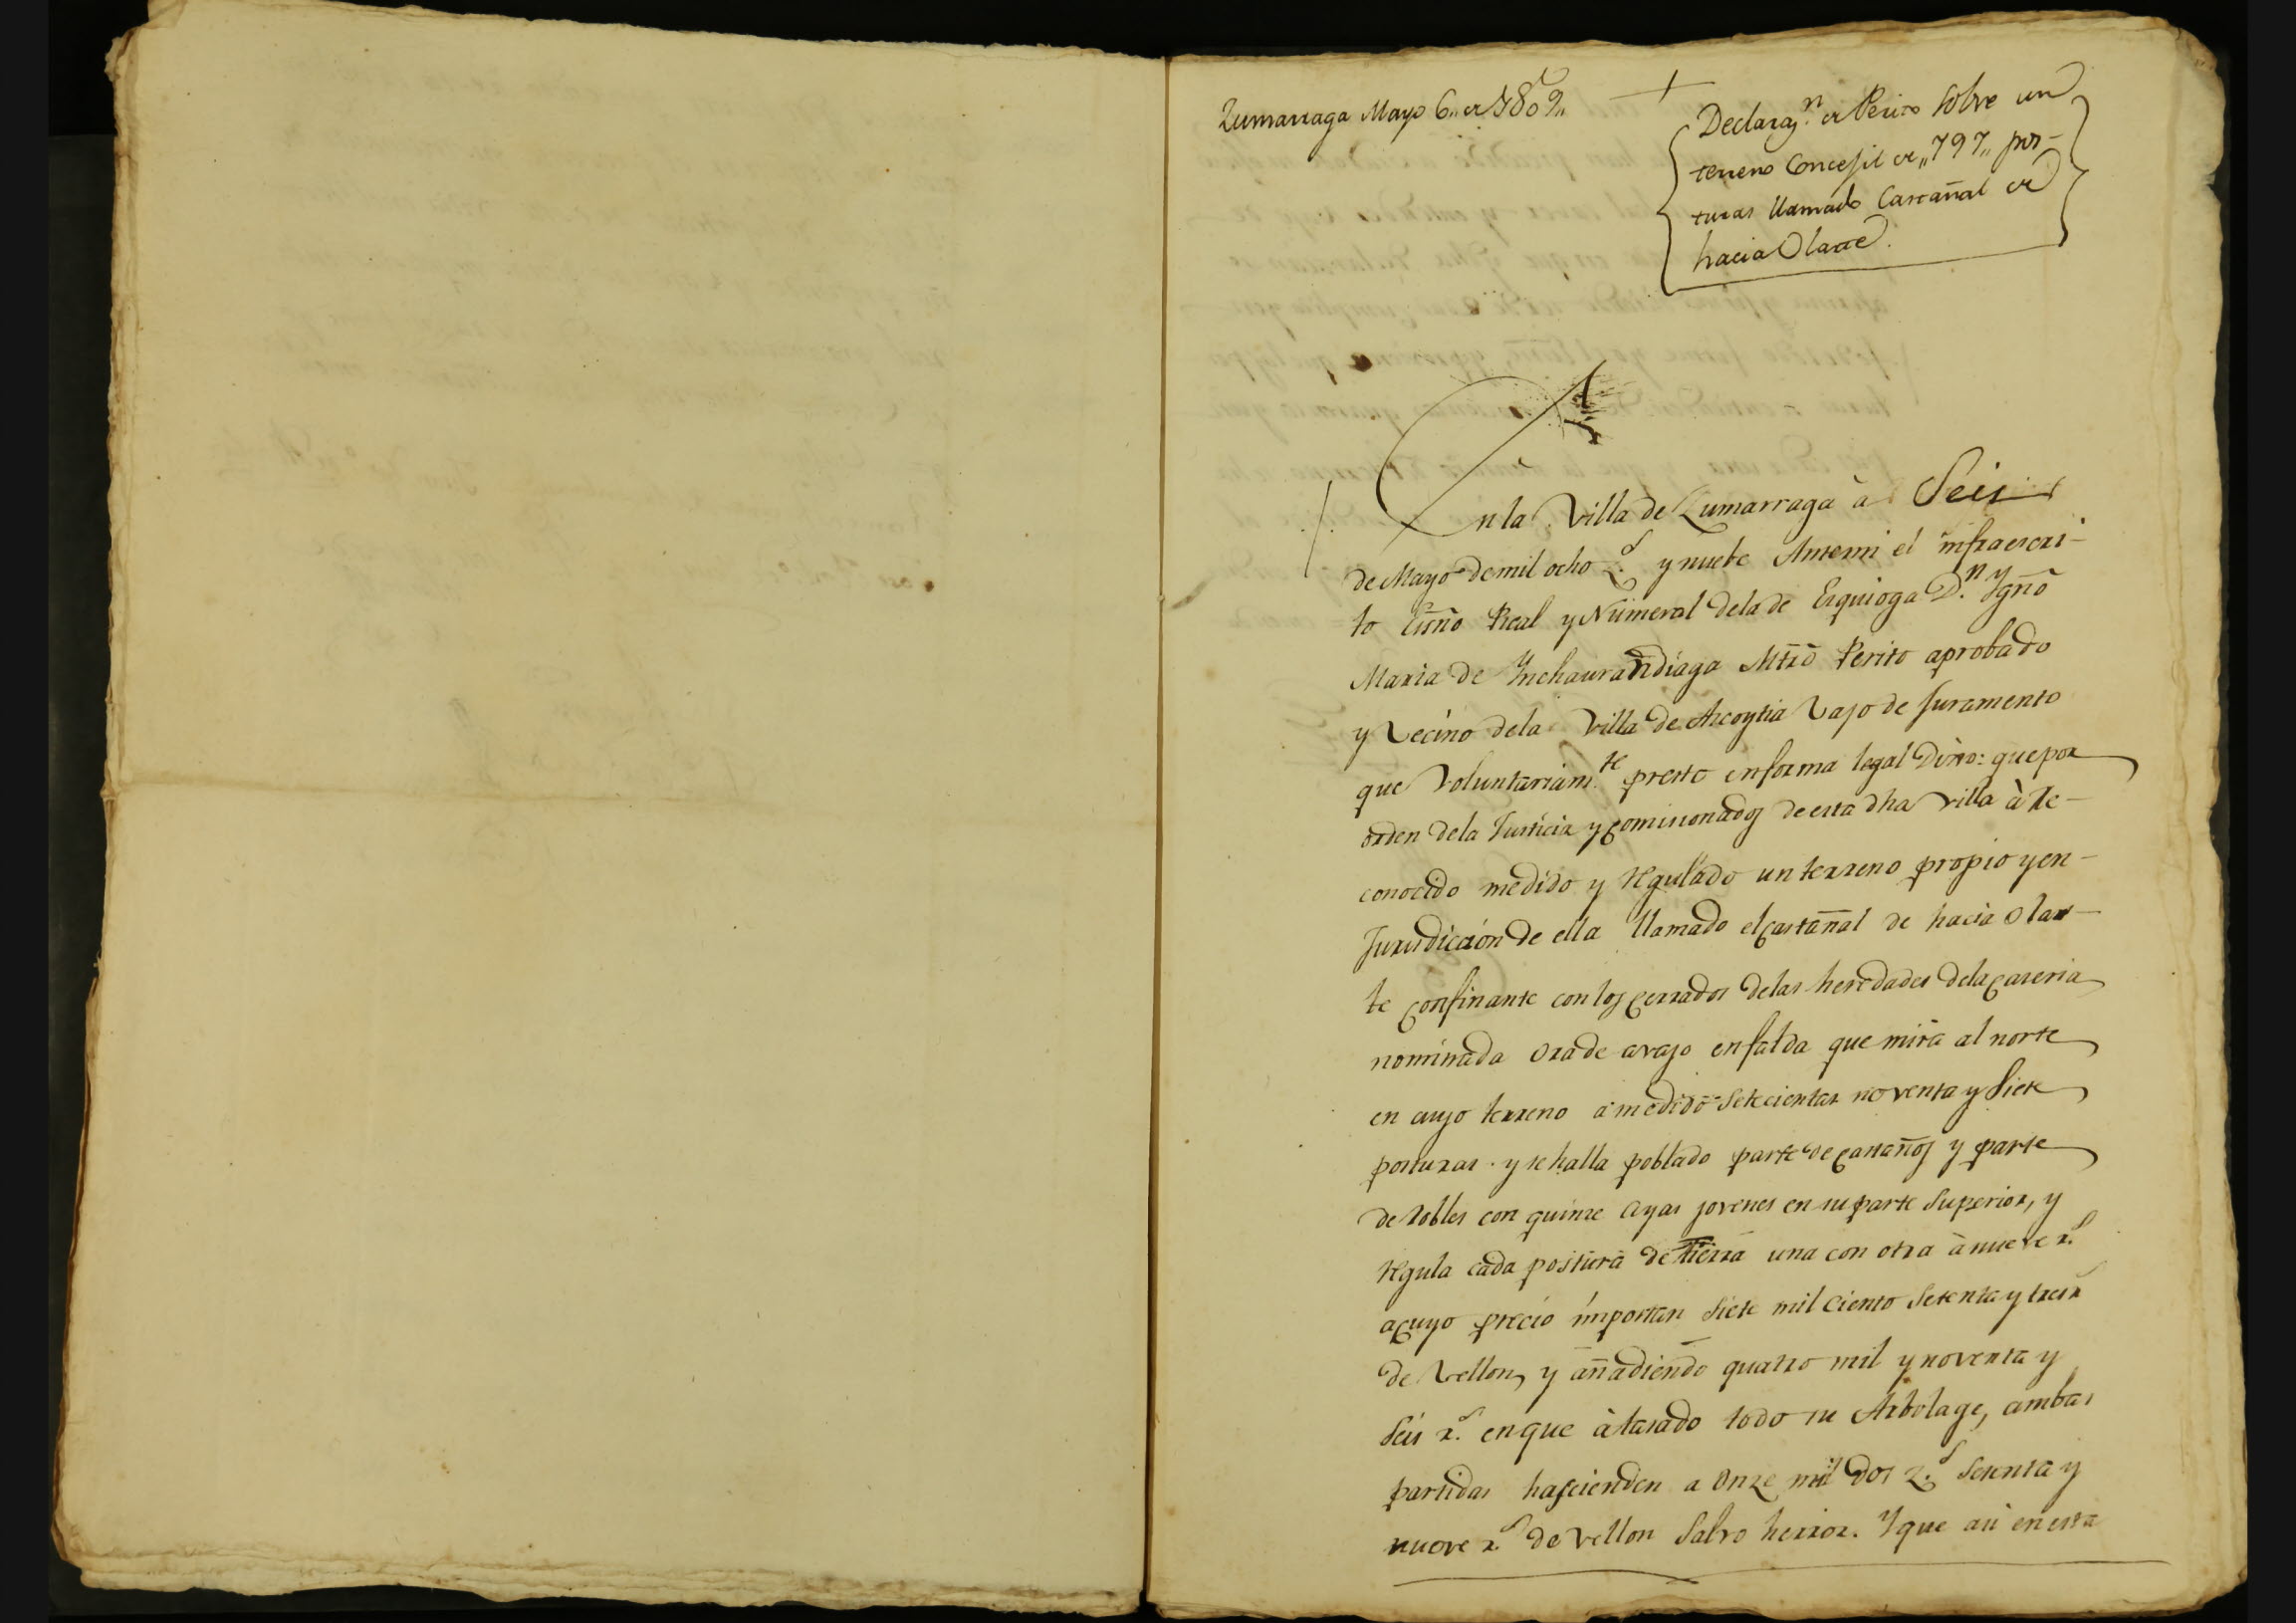 Zumarraga Mayo 6,, de 1809,,
+
Declaraz.n de Perito sobre un
terreno Concejil de,, 797,, pos-
turas llamado Castañal de
hacia Olarte.
En la Villa de Zumarraga à Seis
de Mayo de mil ocho z.s y nuebe Antemi el infraescri-
to Essño Real y Númeral dela de Esquioga D.n Ygño
Maria de Ynchaurandiaga Mtrõ Perito aprobado
y Vecino dela Villa de Azcoytia Vajo de Juramento
que Voluntariam.te presto enforma legal Dixo: que por
orden dela Justicia y comisionados de esta dha Villa à Re-
conocido medido y Regulado un terreno propio y en-
Jurisdiccion de ella llamado el castañal de hacia Olar-
te confinante con los cerrados delas heredades dela caseria
nominada Orade avajo enfalda que mira al norte
en cuyo terreno a medido setecientas noventa y Siete
posturas. y se halla poblado parte de castaños y parte
de Robles con quinze Ayas jovenes en su parte Superior, y
Regula cada postura de tierra una con otra à nueve r.s
a cuyo precio importan Siete mil ciento Setenta y tres r.s
de Vellon, y añadiendo quatro mil y noventa y
Seis r.s enque à tasado todo su Arbolage, ambas
partidas hascienden a Onze mil dos z.s Setenta y
nueve r.s de Vellon Salvo herror. Y que asi en esta